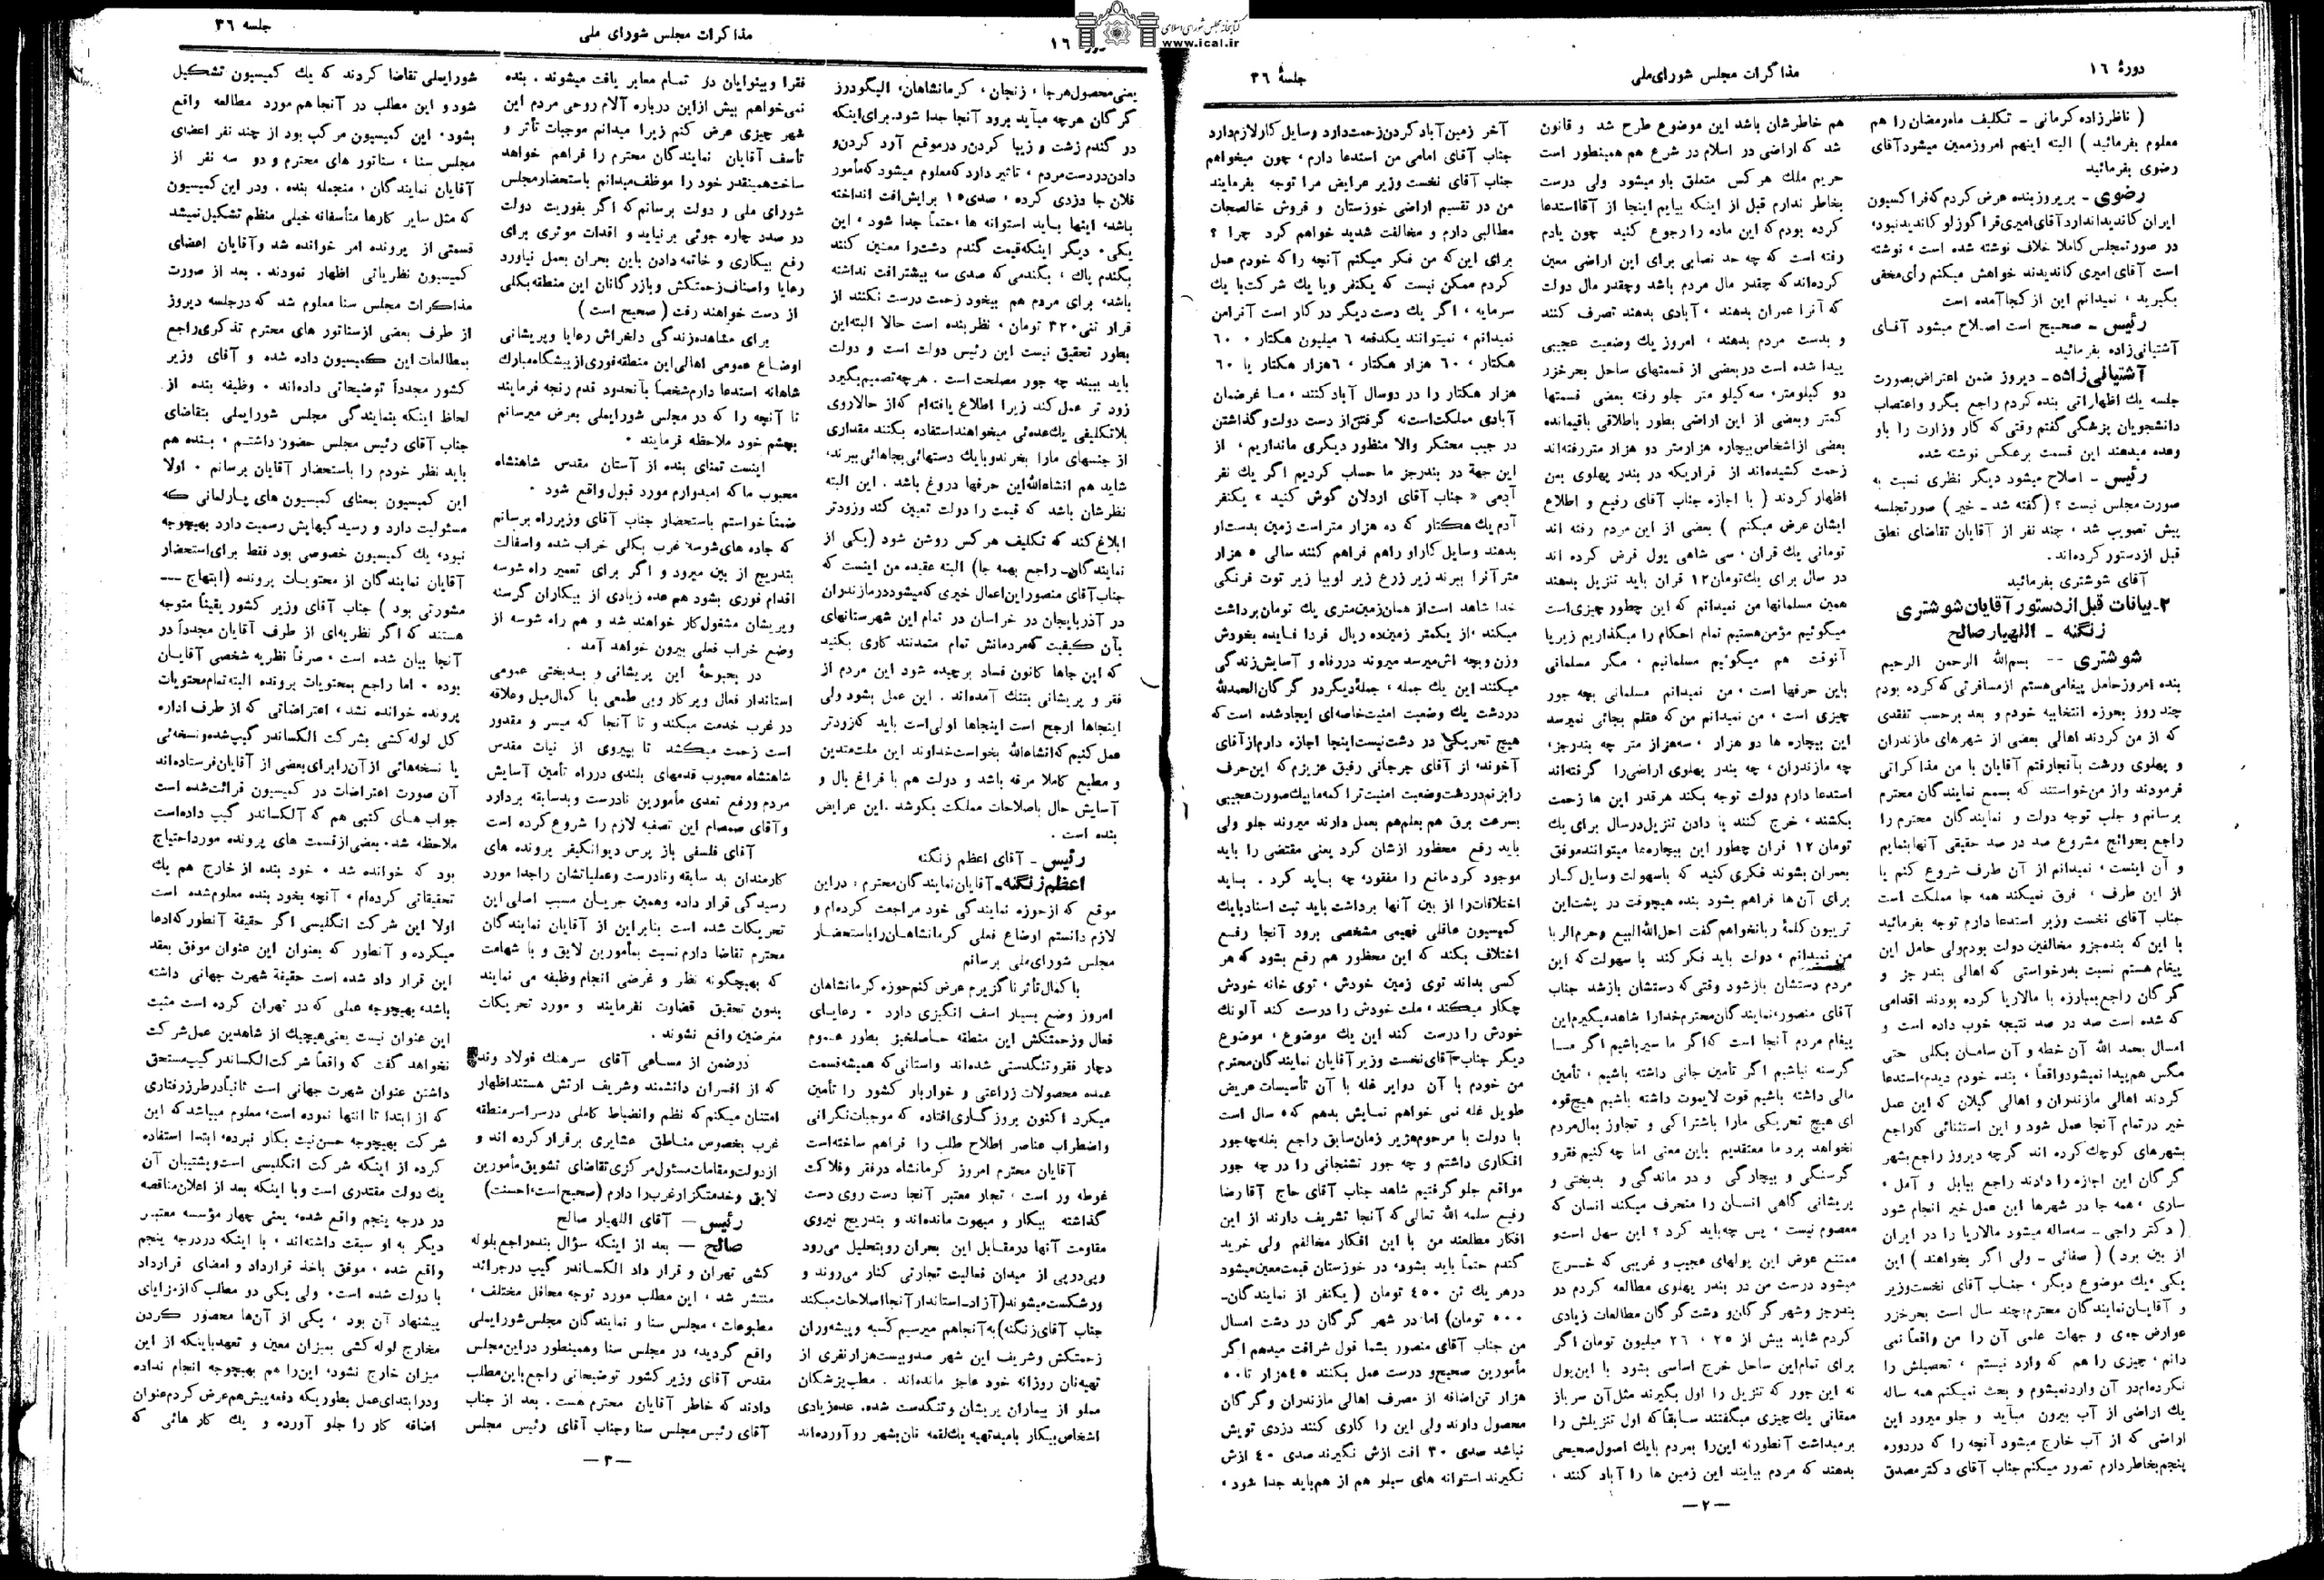 دورهٔ ۱۶
مذاکرات مجلس شورای ملی
جلسهٔ ۳۶
( ناظرزاده کرمانی ـ تکلیف ماه رمضان را هم
معلوم بفرمائید ) البته اینهم امروز معین میشود آقای
رضوی بفرمائید
رضوی ـ پریروز بنده عرض کردم که فراکسیون
ایران کاندیدا ندارد آقای امیری قراگوزلو کاندید نبود،
در صورتمجلس کاملا خلاف نوشته شده است ، نوشته
است آقای امیری کاندیدند خواهش میکنم رأی مخفی
بگیرید ، نمیدانم این از کجا آمده است
رئیس ـ صحیح است اصلاح میشود آقای
آشتیانی زاده بفرمائید
آشتیانی زاده ـ دیروز ضمن اعتراض بصورت
جلسه یك اظهاراتی بنده کردم راجع بگرو واعتصاب
دانشجویان پزشکی گفتم وقتی که کار وزارت را باو
وعده میدهند این قسمت برعکس نوشته شده
رئیس ـ اصلاح میشود دیگر نظری نسبت به
صورت مجلس نیست ؟ (گفته شد ـ خیر ) صورتجلسه
پیش تصویب شد ، چند نفر از آقایان تقاضای نطق
قبل ازدستور کرده‌اند.
آقای شوشتری بفرمائید
۲ـ بیانات قبل از دستور آقایان شوشتری
زنگنه ـ اللهیار صالح
شوشتری -- بسم‌الله الرحمن الرحیم
بنده امروز حامل پیغامی هستم از مسافرتی که کرده بودم
چند روز بحوزه انتخابیه خودم و بعد برحسب تفقدی
که از من کردند اهالی بعضی از شهرهای مازندران
و پهلوی ورشت بآنجا رفتم آقایان با من مذاکراتی
فرمودند واز من خواستند که بسمع نمایندگان محترم
برسانم و جلب توجه دولت و نمایندگان محترم را
راجع بحوائج مشروع صد در صد حقیقی آنها بنمایم
و آن اینست ، نمیدانم از آن طرف شروع کنم یا
از این طرف ، فرق نمیکند همه جا مملکت است
جناب آقای نخست وزیر استدعا دارم توجه بفرمائید
با این که بنده جزو مخالفین دولت بودم ولی حامل این
پیغام هستم نسبت بدرخواستی که اهالی بندر جز و
گرگان راجع بمبارزه با مالاریا کرده بودند اقدامی
که شده است صد در صد نتیجه خوب داده است و
امسال بحمد الله آن خطه و آن سامان بکلی حتی
مگس هم پیدا نمیشود واقعاً ، بنده خودم دیدم، استدعا
کردند اهالی مازندران و اهالی گیلان که این عمل
خیر در تمام آنجا عمل شود و این استثنائی که راجع
بشهرهای کوچك کرده اند گرچه دیروز راجع بشهر
گرگان این اجازه را دادند راجع ببابل و آمل ،
ساری ، همه جا در شهرها این عمل خیر انجام شود
( دکتر راجی ـ سه‌ساله میشود مالاریا را در ایران
از بین برد ) ( صفائی ـ ولی اگر بخواهند ) این
یکی ، یك موضوع دیگر ، جناب آقای نخست‌وزیر
و آقایان نمایندگان محترم، چند سال است بحرخزر
عوارض جوی و جهات علمی آن را من واقعاً نمی
دانم ، چیزی را هم که وارد نیستم ، تحصیلش را
نکرده‌ام در آن وارد نمیشوم و بحث نمیکنم همه ساله
یك اراضی از آب بیرون میآید و جلو میرود این
اراضی که از آب خارج میشود آنچه را که دردوره
پنجم بخاطر دارم تصور میکنم جناب آقای دکتر مصدق
هم خاطرشان باشد این موضوع طرح شد و قانون
شد که اراضی در اسلام در شرع هم همینطور است
حریم ملك هر کس متعلق باو میشود ولی درست
بخاطر ندارم قبل از اینکه بیایم اینجا از آقا استدعا
کرده بودم که این ماده را رجوع کنید چون یادم
رفته است که چه حد نصابی برای این اراضی معین
کرده‌اند که چقدر مال مردم باشد وچقدر مال دولت
که آنرا عمران بدهند ، آبادی بدهند تصرف کنند
و بدست مردم بدهند ، امروز یك وضعیت عجیبی
پیدا شده است در بعضی از قسمتهای ساحل بحرخزر
دو کیلومتر، سه کیلو متر جلو رفته بعضی قسمتها
کمتر وبعضی از این اراضی بطور باطلاقی باقیمانده
بعضی از اشخاص بیچاره هزارمتر دو هزار متر رفته‌اند
زحمت کشیده‌اند از قراریکه در بندر پهلوی بمن
اظهار کردند ( با اجازه جناب آقای رفیع و اطلاع
ایشان عرض میکنم ) بعضی از این مردم رفته اند
تومانی یك قران ، سی شاهی پول قرض کرده اند
در سال برای یك تومان ۱۲ قران باید تنزیل بدهند
همین مسلمانها من نمیدانم که این چطور چیزی است
میگوئیم مؤمن هستیم تمام احکام را میگذاریم زیر پا
آنوقت هم میگوئیم مسلمانیم ، مگر مسلمانی
باین حرفها است ، من نمیدانم مسلمانی بچه جور
چیزی است ، من نمیدانم من که عقلم بجائی نمیرسد
این بیچاره ها دو هزار ، سه‌هزار متر چه بندرجز،
چه مازندران ، چه بندر پهلوی اراضی را گرفته‌اند
استدعا دارم دولت توجه بکند هرقدر این ها زحمت
بکشند ، خرج کنند با دادن تنزیل درسال برای یك
تومان ۱۲ قران چطور این بیچاره‌ها میتوانند موفق
بعمران بشوند فکری کنید که باسهولت وسایل کار
برای آن‌ها فراهم بشود بنده هیچوقت در پشت این
تریبون کلمهٔ ربا نخواهم گفت احل‌الله البیع وحرم الربا
من نمیدانم ، دولت باید فکر کند با سهولت که این
مردم دستشان باز شود وقتی که دستشان باز شد جناب
آقای منصور، نمایندگان محترم خدا را شاهد میگیرم این
پیغام مردم آنجا است که‌اگر ما سیر باشیم اگر ما
گرسنه نباشیم اگر تأمین جانی داشته باشیم ، تأمین
مالی داشته باشیم قوت لایموت داشته باشیم هیچ قوه
ای هیچ تحریکی مارا باشتراکی و تجاوز بمال مردم
نخواهد برد ما معتقدیم باین معنی اما چه کنیم فقرو
گرسنگی و بیچارگی و در ماندگی و بدبختی و
پریشانی گاهی انسان را منحرف میکند انسان که
معصوم نیست ، پس چه باید کرد ؟ این سهل است و
ممتنع عوض این پولهای عجیب و غریبی که خرج
میشود درست من در بندر پهلوی مطالعه کردم در
بندرجز وشهر گرگان و دشت گرگان مطالعات زیادی
کردم شاید بیش از ۲۵ ، ۲۶ میلیون تومان اگر
برای تمام این ساحل خرج اساسی بشود با این پول
نه این جور که تنزیل را اول بگیرند مثل آن سرباز
ممقانی یك چیزی میگفتند سابقاً که اول تنزیلش را
برمیداشت آنطور نه این را بمردم بایك اصول صحیحی
بدهند که مردم بیایند این زمین ها را آباد کنند ،
آخر زمین آباد کردن زحمت دارد وسایل کار لازم دارد
جناب آقای امامی من استدعا دارم ، چون میخواهم
جناب آقای نخست وزیر عرایض مرا توجه بفرمایند
من در تقسیم اراضی خوزستان و فروش خالصجات
مطالبی دارم و مخالفت شدید خواهم کرد چرا ؟
برای این‌که من فکر میکنم آنچه را که خودم عمل
کردم ممکن نیست که یکنفر ویا یك شرکت با یك
سرمایه ، اگر یك دست دیگر در کار است آنرا من
نمیدانم ، نمیتوانند یکدفعه ۶ میلیون هکتار ، ۶۰
هکتار ، ۶۰ هزار هکتار ، ۶هزار هکتار یا ۶۰
هزار هکتار را در دوسال آباد کنند ، ما غرضمان
آبادی مملکت است نه گرفتن از دست دولت و گذاشتن
در جیب محتکر والا منظور دیگری ما نداریم ، از
این جهة در بندرجز ما حساب کردیم اگر یك نفر
آدمی « جناب آقای اردلان گوش کنید » یکنفر
آدم یك هکتار که ده هزار متر است زمین بدست او
بدهند وسایل کار او را هم فراهم کنند سالی ۵ هزار
متر آنرا ببرند زیر زرع زیر لوبیا زیر توت فرنگی
خدا شاهد است از همان زمین متری یك تومان برداشت
میکند ، از یکمتر زمین ده ریال فردا فایده بخودش
وزن وبچه اش میرسد میروند در رفاه و آسایش زندگی
میکنند این یك جمله ، جملهٔ دیگر در گرگان الحمدلله
در دشت یك وضعیت امنیت خاصه‌ای ایجاد شده است که
هیچ تحریکی در دشت نیست اینجا اجازه دارم از آقای
آخوند، از آقای جرجانی رفیق عزیزم که این حرف
را بزنم در دشت وضعیت امنیت تراکمه ما بیك صورت عجیبی
بسرعت برق هم بعلم هم بعمل دارند میروند جلو ولی
باید رفع محظور ازشان کرد یعنی مقتضی را باید
موجود کرد مانع را مفقود، چه باید کرد . باید
اختلافات را از بین آنها برداشت باید ثبت اسناد بایك
کمیسیون عاقلی فهیمی مشخصی برود آنجا رفع
اختلاف بکند که این محظور هم رفع بشود که هر
کسی بداند توی زمین خودش ، توی خانه خودش
چکار میکند ، ملت خودش را درست کند آلونك
خودش را درست کند این یك موضوع ، موضوع
دیگر جناب آقای نخست وزیر آقایان نمایندگان محترم
من خودم با آن دوایر غله با آن تأسیسات عریض
طویل غله نمی خواهم نمایش بدهم که ۵ سال است
با دولت با مرحوم هژیر زمان سابق راجع بغله چه جور
افکاری داشتم و چه جور تشنجاتی را در چه جور
مواقع جلوگرفتیم شاهد جناب آقای حاج آقا رضا
رفیع سلمه الله تعالی که آنجا تشریف دارند از این
افکار مطلعند من با این افکار مخالفم ولی خرید
گندم حتماً باید بشود، در خوزستان قیمت معین میشود
درهر یك تن ۴۵۰ تومان ( یکنفر از نمایندگان-
۵۰۰ تومان) اما در شهر گرگان در دشت امسال
من جناب آقای منصور بشما قول شرافت میدهم اگر
مأمورین صحیح و درست عمل بکنند ۴۵ هزار تا ۵۰
هزار تن اضافه از مصرف اهالی مازندران و گرگان
محصول دارند ولی این را کاری کنند دزدی تویش
نباشد صدی ۳۰ افت ازش نگیرند صدی ۴۰ ازش
نگیرند استوانه های سیلو هم از هم باید جدا شود ،
— ۲ —
دوره ۱۶
مذاکرات مجلس شورای ملی
جلسه ۳۶
یعنی محصول هرجا ، زنجان ، کرمانشاهان، الیگودرز
گرگان هرچه میآید برود آنجا جدا شود. برای اینکه
در گندم زشت و زیبا کردن و درموقع آرد کردن و
دادن در دست مردم ، تاثیر دارد که معلوم میشود که مأمور
فلان جا دزدی کرده ، صدی ۱۵ برایش افت انداخته
باشد، اینها باید استوانه ها، حتماً جدا شود ، این
یکی، دیگر اینکه قیمت گندم دشت را معین کنند
بگندم پاك ، بگندمی که صدی سه بیشتر افت نداشته
باشد، برای مردم هم بیخود زحمت درست نکنند از
قرار تنی ۳۲۰ تومان ، نظر بنده است حالا البته این
بطور تحقیق نیست این رئیس دولت است و دولت
باید ببیند چه جور مصلحت است . هرچه تصمیم بگیرد
زود تر عمل کند زیرا اطلاع یافته‌ام که از حالا روی
بلاتکلیفی یك عده‌ئی میخواهند استفاده بکنند مقداری
از جنسهای مارا بخرند و بایك دستهائی بجاهائی ببرند،
شاید هم انشاءالله این حرفها دروغ باشد . این البته
نظرشان باشد که قیمت را دولت تعیین کند وزودتر
ابلاغ کند که تکلیف هر کس روشن شود (یکی از
نمایندگان- راجع بهمه جا) البته عقیده من اینست که
جناب آقای منصور این اعمال خیری که میشود در مازندران
در آذربایجان در خراسان در تمام این شهرستانهای
بآن کیفیت که مردمانش تمام متمدنند کاری بکنید
که این جاها کانون فساد برچیده شود این مردم از
فقر و پریشانی بتنك آمده‌اند . این عمل بشود ولی
اینجاها ارجح است اینجاها اولی است باید که زودتر
عمل کنیم که انشاءالله بخواست خداوند این ملت متدین
و مطیع کاملا مرفه باشد و دولت هم با فراغ بال و
آسایش حال باصلاحات مملکت بکوشد . این عرایض
بنده است .
رئیس ـ آقای اعظم زنگنه
اعظم زنگنه ـ آقایان نمایندگان محترم : در این
موقع که از حوزه نمایندگی خود مراجعت کرده‌ام و
لازم دانستم اوضاع فعلی کرمانشاهان را باستحضار
مجلس شورای ملی برسانم
با کمال تأثر ناگزیرم عرض کنم حوزه کرمانشاهان
امروز وضع بسیار اسف انگیزی دارد ، رعایای
فعال وزحمتکش این منطقه حاصلخیز بطور عموم
دچار فقر و تنگدستی شده‌اند واستانی که همیشه قسمت
عمده محصولات زراعتی و خواربار کشور را تأمین
میکرد اکنون بروزگاری افتاده که موجبات نگرانی
واضطراب عناصر اطلاح طلب را فراهم ساخته است
آقایان محترم امروز کرمانشاه در فقر و فلاکت
غوطه ور است ، تجار معتبر آنجا دست روی دست
گذاشته بیکار و مبهوت مانده‌اند و بتدریج نیروی
مقاومت آنها در مقابل این بحران رو بتحلیل می‌رود
وپی‌درپی از میدان فعالیت تجارتی کنار می‌روند و
ورشکست میشوند (آزاد-استاندار آنجا اصلاحات میکند
جناب آقای زنگنه) به آنجا هم میرسیم کسبه و پیشه‌وران
زحمتکش وشریف این شهر صد و بیست هزار نفری از
تهیه نان روزانه خود عاجز مانده‌اند . مطب پزشکان
مملو از بیماران پریشان و تنگدست شده، عده زیادی
اشخاص بیکار بامید تهیه یك لقمه نان بشهر رو آورده‌اند
فقرا وبینوایان در تمام معابر یافت میشوند ، بنده
نمی‌خواهم بیش از این درباره آلام روحی مردم این
شهر چیزی عرض کنم زیرا میدانم موجبات تأثر و
تأسف آقایان نمایندگان محترم را فراهم خواهد
ساخت همینقدر خود را موظف میدانم باستحضار مجلس
شورای ملی و دولت برسانم که اگر بفوریت دولت
در صدد چاره جوئی برنیاید و اقدات موثری برای
رفع بیکاری و خاتمه دادن باین بحران بعمل نیاورد
رعایا واصناف زحمتکش وبازرگانان این منطقه بکلی
از دست خواهند رفت ( صحیح است )
برای مشاهده زندگی دلخراش رعایا و پریشانی
اوضاع عمومی اهالی این منطقه فوری از پیشگاه مبارك
شاهانه استدعا دارم شخصاً بآنحدود قدم رنجه فرمایند
تا آنچه را که در مجلس شورایملی بعرض میرسانم
بچشم خود ملاحظه فرمایند ،
اینست تمنای بنده از آستان مقدس شاهنشاه
محبوب ما که امیدوارم مورد قبول واقع شود ،
ضمناً خواستم باستحضار جناب آقای وزیر راه برسانم
که جاده های شوسهٔ غرب بکلی خراب شده واسفالت
بتدریج از بین میرود و اگر برای تعمیر راه شوسه
اقدام فوری بشود هم عده زیادی از بیکاران گرسنه
وپریشان مشغول کار خواهند شد و هم راه شوسه از
وضع خراب فعلی بیرون خواهد آمد .
در بحبوحهٔ این پریشانی و بدبختی عمومی
استاندار فعال و پرکار وبی طمعی با کمال میل وعلاقه
در غرب خدمت میکند و تا آنجا که میسر و مقدور
است زحمت میکشد تا بپیروی از نیات مقدس
شاهنشاه محبوب قدمهای بلندی در راه تأمین آسایش
مردم ورفع تعدی مأمورین نادرست وبدسابقه بردارد
وآقای صمصام این تصفیه لازم را شروع کرده است
آقای فلسفی باز پرس دیوانکیفر پرونده های
کارمندان بد سابقه ونادرست وعملیاتشان را جدا مورد
رسیدگی قرار داده وهمین جریان مسبب اصلی این
تحریکات شده است بنابراین از آقایان نمایندگان
محترم تقاضا دارم نسبت بمأمورین لایق و با شهامت
که بهیچگونه نظر و غرضی انجام وظیفه می نمایند
بدون تحقیق قضاوت نفرمایند و مورد تحریکات
مغرضین واقع نشوند .
درضمن از مساعی آقای سرهنك فولاد وند
که از افسران دانشمند وشریف ارتش هستند اظهار
امتنان میکنم که نظم وانضباط کاملی در سراسر منطقه
غرب بخصوص مناطق عشایری برقرار کرده اند و
از دولت و مقامات مسئول مرکزی تقاضای تشویق مأمورین
لایق وخدمتگزار غرب را دارم (صحیح است، احسنت)
رئیس ـ آقای اللهیار صالح
صالح ـ بعد از اینکه سؤال بنده راجع بلوله
کشی تهران و قرار داد الکساندر گیپ در جرائد
منتشر شد ، این مطلب مورد توجه محافل مختلف ،
مطبوعات ، مجلس سنا و نمایندگان مجلس شورایملی
واقع گردید، در مجلس سنا وهمینطور در این مجلس
مقدس آقای وزیر کشور توضیحاتی راجع باین مطلب
دادند که خاطر آقایان محترم هست . بعد از جناب
آقای رئیس مجلس سنا وجناب آقای رئیس مجلس
شورایملی تقاضا کردند که یك کمیسیون تشکیل
شود و این مطلب در آنجا هم مورد مطالعه واقع
بشود، این کمیسیون مرکب بود از چند نفر اعضای
مجلس سنا ، سناتور های محترم و دو سه نفر از
آقایان نمایندگان ، منجمله بنده . ودر این کمیسیون
که مثل سایر کارها متأسفانه خیلی منظم تشکیل نمیشد
قسمتی از پرونده امر خوانده شد و آقایان اعضای
کمیسیون نظریاتی اظهار نمودند ، بعد از صورت
مذاکرات مجلس سنا معلوم شد که درجلسه دیروز
از طرف بعضی از سناتور های محترم تذکری راجع
بمطالعات این کمیسیون داده شده و آقای وزیر
کشور مجدداً توضیحاتی داده‌اند ، وظیفه بنده از
لحاظ اینکه بنمایندگی مجلس شورایملی بتقاضای
جناب آقای رئیس مجلس حضور داشتم ، بنده هم
باید نظر خودم را باستحضار آقایان برسانم ، اولا
این کمیسیون بمعنای کمیسیون های پارلمانی که
مسئولیت دارد و رسیدگیهایش رسمیت دارد بهیچوجه
نبود، یك کمیسیون خصوصی بود فقط برای استحضار
آقایان نمایندگان از محتویات پرونده (ابتهاج ---
مشورتی بود ) جناب آقای وزیر کشور یقیناً متوجه
هستند که اگر نظریه‌ای از طرف آقایان مجدداً در
آنجا بیان شده است ، صرفاً نظریه شخصی آقایان
بوده ، اما راجع بمحتویات پرونده البته تمام محتویات
پرونده خوانده نشد ، اعتراضاتی که از طرف اداره
کل لوله کشی بشرکت الکساندر گیپ شده و نسخه‌ئی
یا نسخه‌هائی از آن را برای بعضی از آقایان فرستاده‌اند
آن صورت اعتراضات در کمیسیون قرائت شده است
جواب های کتبی هم که آلکساندر گیپ داده است
ملاحظه شد ، بعضی از قسمت های پرونده مورد احتیاج
بود که خوانده شد ، خود بنده از خارج هم یك
تحقیقاتی کرده‌ام ، آنچه بخود بنده معلوم شده است
اولا این شرکت انگلیسی اگر حقیقة آنطور که ادعا
میکرده و آنطور که بعنوان این عنوان موفق بعقد
این قرار داد شده است حقیقة شهرت جهانی داشته
باشد، بهیچوجه عملی که در تهران کرده است مثبت
این عنوان نیست یعنی هیچیك از شاهدین عمل شرکت
نخواهد گفت که واقعاً شرکت الکساندر گیپ مستحق
داشتن عنوان شهرت جهانی است ثانیاً درطرز رفتاری
که از ابتدا تا انتها نموده است، معلوم میباشد که این
شرکت بهیچوجه حسن نیت بکار نبرده، ابتدا استفاده
کرده از اینکه شرکت انگلیسی است و پشتیبان آن
یك دولت مقتدری است وبا اینکه بعد از اعلان مناقصه
در درجه پنجم واقع شده، یعنی چهار مؤسسه معتبر
دیگر به او سبقت داشته‌اند ، با اینکه دردرجه پنجم
واقع شده ، موفق باخذ قرارداد و امضای قرارداد
با دولت شده است، ولی یکی دو مطلب که از مزایای
پیشنهاد آن بود ، یکی از آن‌ها محصور کردن
مخارج لوله کشی بمیزان معین و تعهد باینکه از این
میزان خارج نشود، این را هم بهیچوجه انجام نداده
ودر ابتدای عمل بطوریکه دفعه پیش هم عرض کردم عنوان
اضافه کار را جلو آورده و یك کار هائی که
— ۳ —
کتابخانه مجلس شورای اسلامی
www.ical.ir